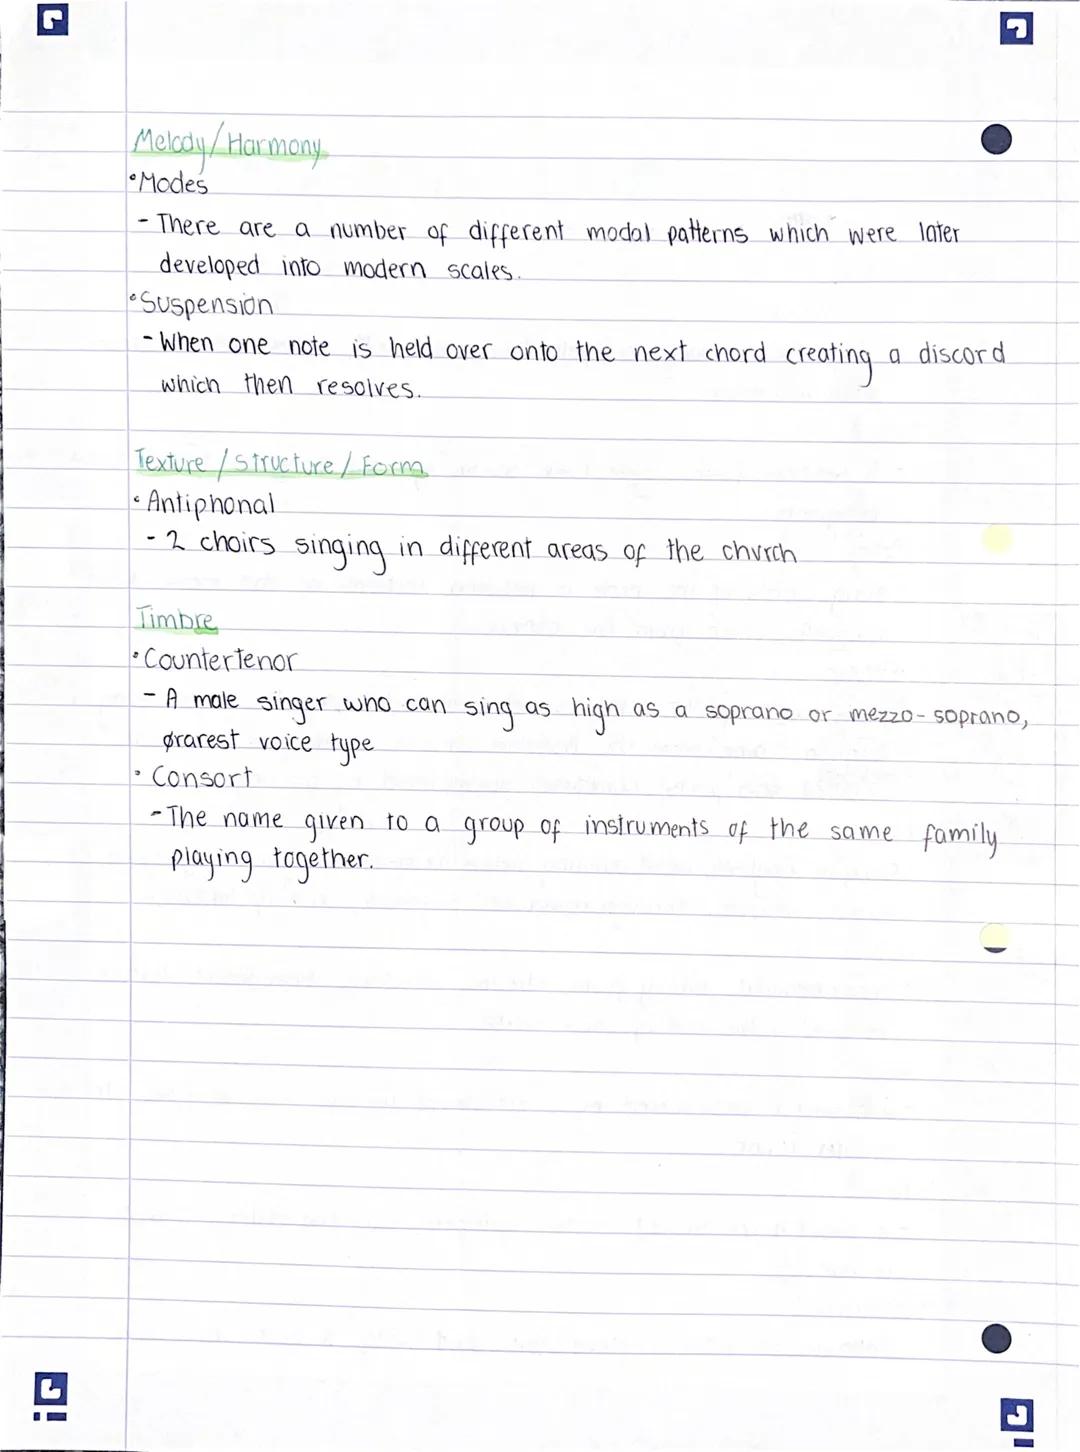 Melody/Harmony
•Modes
- There are a number of different modal patterns which were later
developed into modern scales.
•Suspension
- When one note is held over onto the next chord creating a discord
which then resolves.
Texture / Structure / Form
• Antiphonal
- 2 choirs singing in different areas of the church
Timbre
• Countertenor
- A male singer who can sing as high as a soprano or mezzo-soprano,
rarest voice type
• Consort
- The name given to a group of instruments of the same family
playing together.